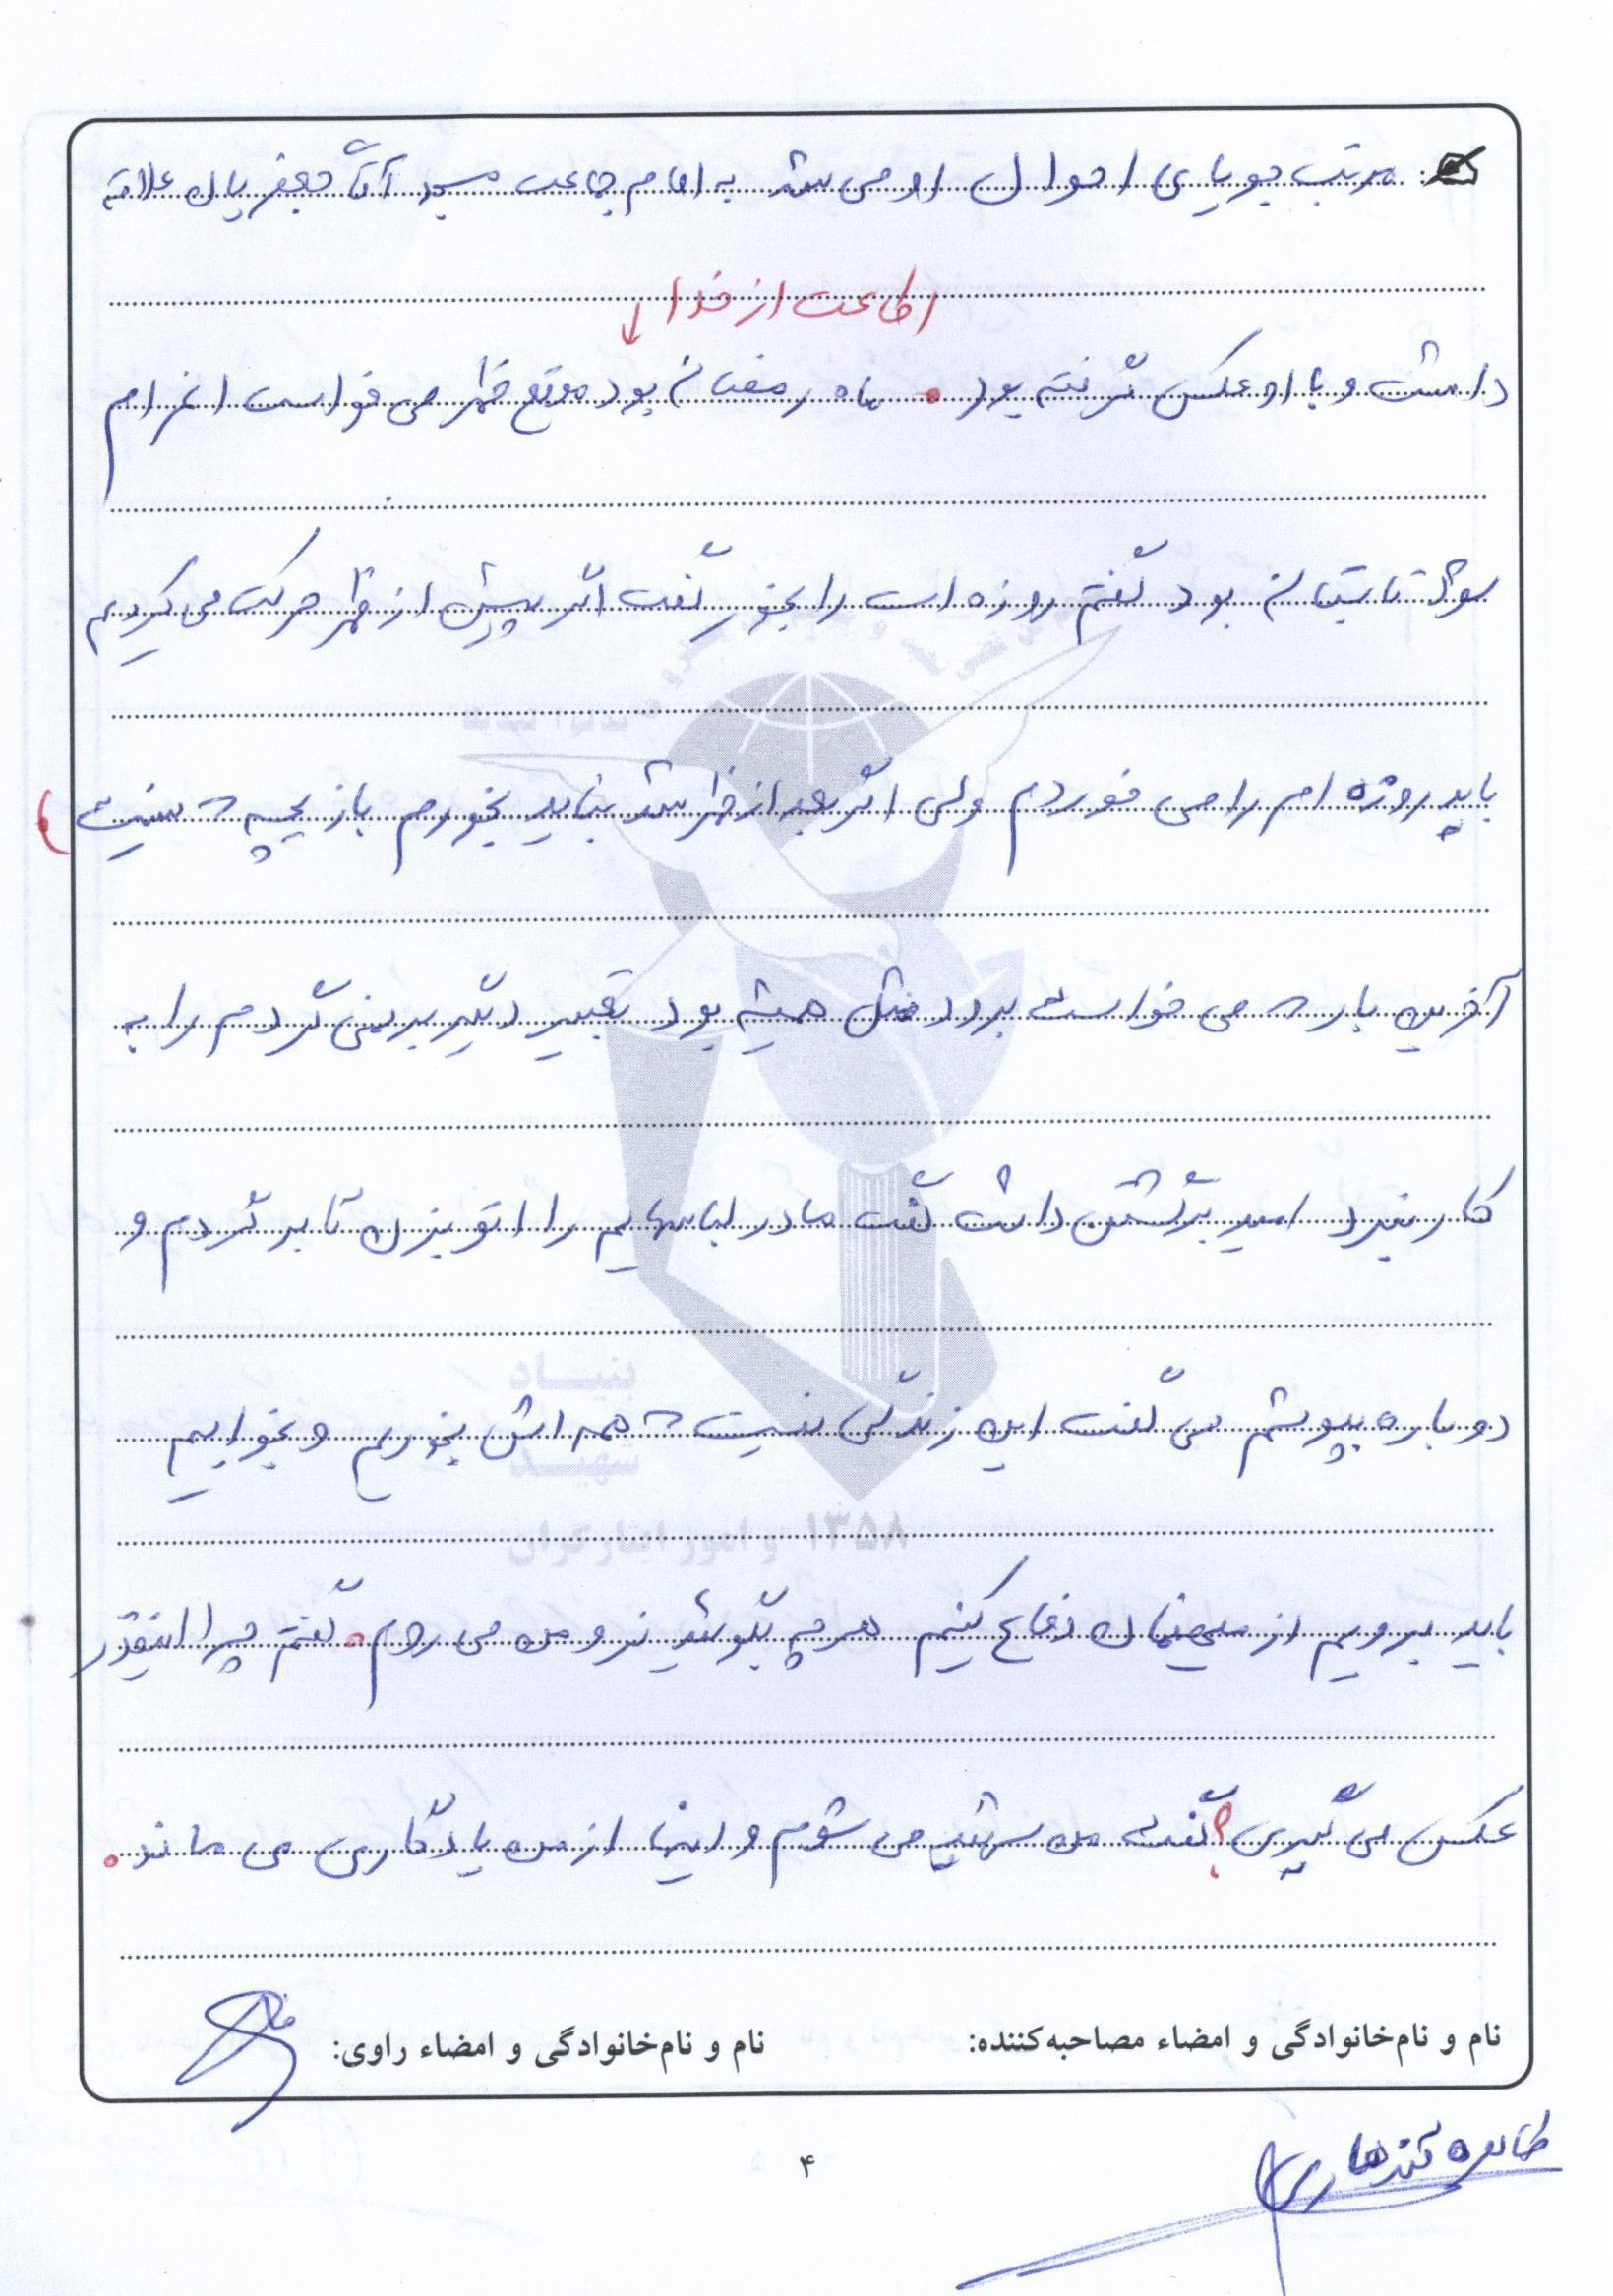 مرتب جویای احوال او می شد به امام جماعت مسجد آقا جعفر یال علاقه
اطاعت از خدا
داشت و با او عکس گرفته بود. ماه رمضان بود موقع ظهر می خواست اعزام
شود تابستان بود گفتم روزه ات را بخور گفت اگر پیش از ظهر حرکت می کردیم
باید روزه ام را می خوردم ولی اگر بعد از ظهر شد نباید بخورم بازیچه که نیست)
آخرین بار که می خواست برود مثل همیشه بود تعبیر دیگر برنمی گردم را به
کار نبرد امید برگشتن داشت گفت مادر لباسهایم را اتو بزن تا برگردم و
دوباره بپوشم می گفت این زندگی نیست که همه اش بخوریم و بخوابیم
باید برویم از میهنمان دفاع کنیم هر چه بگوئید نرو من می روم. گفتم چرا اینقدر
عکس می گیری؟ گفت من شهید می شوم و اینها از من یادگاری می ماند.
نام و نام‌خانوادگی و امضاء مصاحبه‌کننده: نام و نام‌خانوادگی و امضاء راوی:
طاهره قندهاری
۴
بنیاد
شهید
و امور ایثارگران ۱۳۵۸